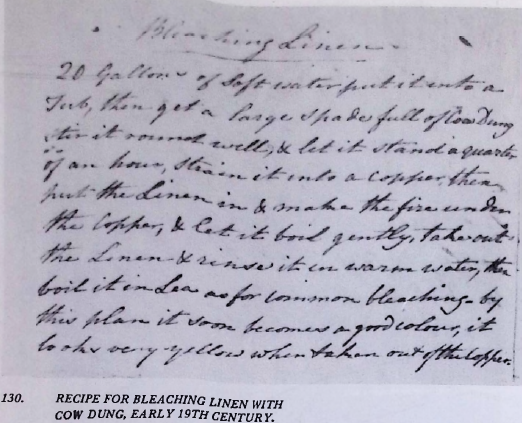 Bleaching Linen
20 Gallons of Soft water put it into a
Tub, then get a large spade full of Cow Dung
stir it round well, & let it stand a quarter
of an hour, strain it into a copper, then
put the Linen in & make the fire under
the Copper, & let it boil gently, take out
the Linen & rinse it in warm water, then
boil it in Lea as for common bleaching - by
this plan it soon becomes a good colour, it
looks very yellow when taken out of the Copper.
130. RECIPE FOR BLEACHING LINEN WITH
COW DUNG, EARLY 19TH CENTURY.